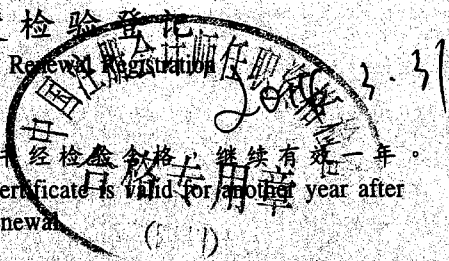 检验登记
Renewal Registration
中国注册会计师任职资格检
3.31
经检验合格，继续有效一年。
合格专用章
ertificate is valid for another year after
newal.